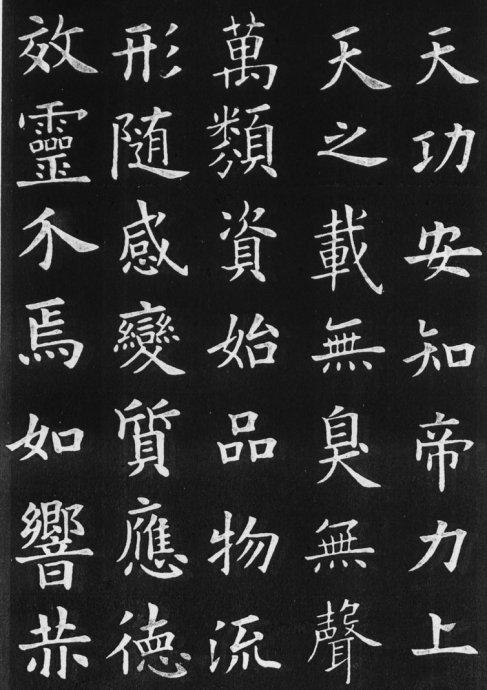 天功安知帝力上
天之載無臭無聲
萬類資始品物流
形随感變質應德
效靈不焉如響恭